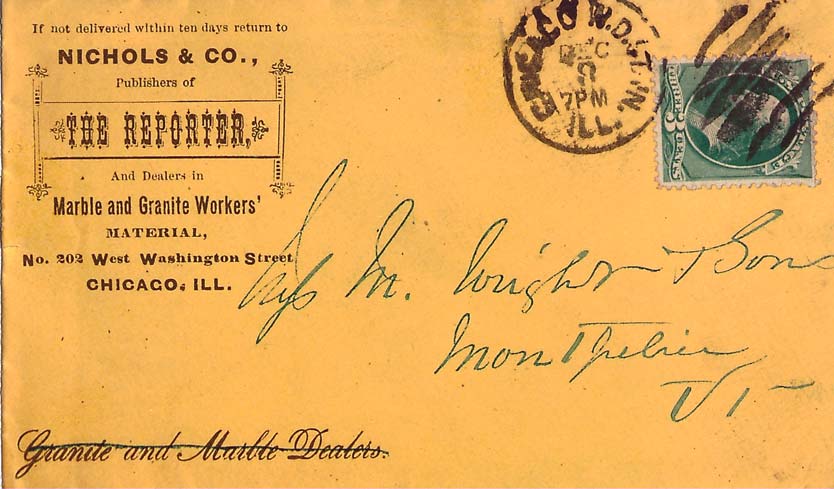 If not delivered within ten days return to
NICHOLS & CO.,
Publishers of
THE REPORTER,
And Dealers in
Marble and Granite Workers'
MATERIAL,
No. 202 West Washington Street
CHICAGO, ILL.
CHICAGO
DEC
7PM
ILL.
M. Wright & Son
Montpelier
Vt
Granite and Marble Dealers.